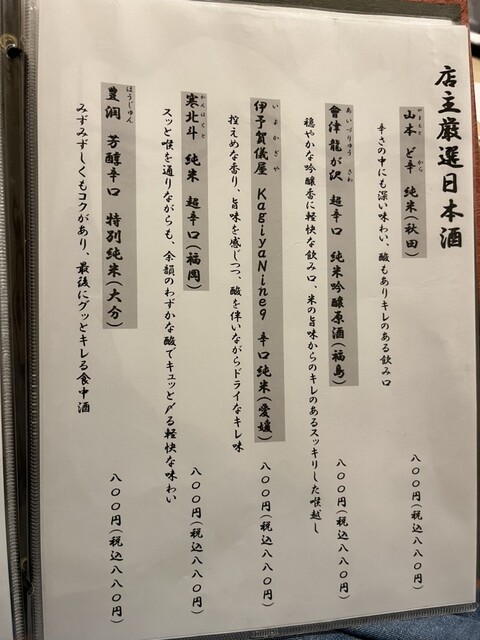 店主厳選日本酒
やまもと から
山本 ど辛 純米(秋田) 八〇〇円(税込八八〇円)
辛さの中にも深い味わい、酸もありキレのある飲み口
あいづりゅう さわ
會津龍が沢 超辛口 純米吟醸原酒(福島) 八〇〇円(税込八八〇円)
穏やかな吟醸香に軽快な飲み口、米の旨味からのキレのあるスッキリした喉越し
いよかぎや
伊予賀儀屋 KagiyaNine9 辛口純米(愛媛) 八〇〇円(税込八八〇円)
控えめな香り、旨味を感じつつ、酸を伴いながらドライなキレ味
かんほくと
寒北斗 純米 超辛口(福岡) 八〇〇円(税込八八〇円)
スッと喉を通りながらも、余韻のわずかな酸でキュッと〆る軽快な味わい
ほうじゅん
豊潤 芳醇辛口 特別純米(大分) 八〇〇円(税込八八〇円)
みずみずしくもコクがあり、最後にグッとキレる食中酒